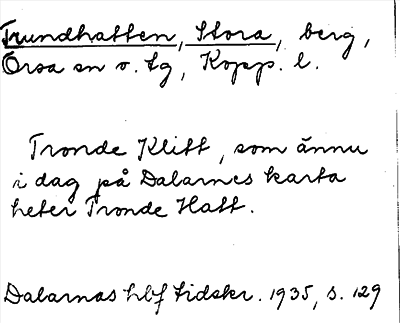 Trundhatten, Stora, berg,
Orsa sn o. tg, Kopp. l.
Tronde Klitt, som ännu
i dag på Dalarnes karta
heter Tronde Hatt.
Dalarnas hbf tidskr. 1935, s. 129